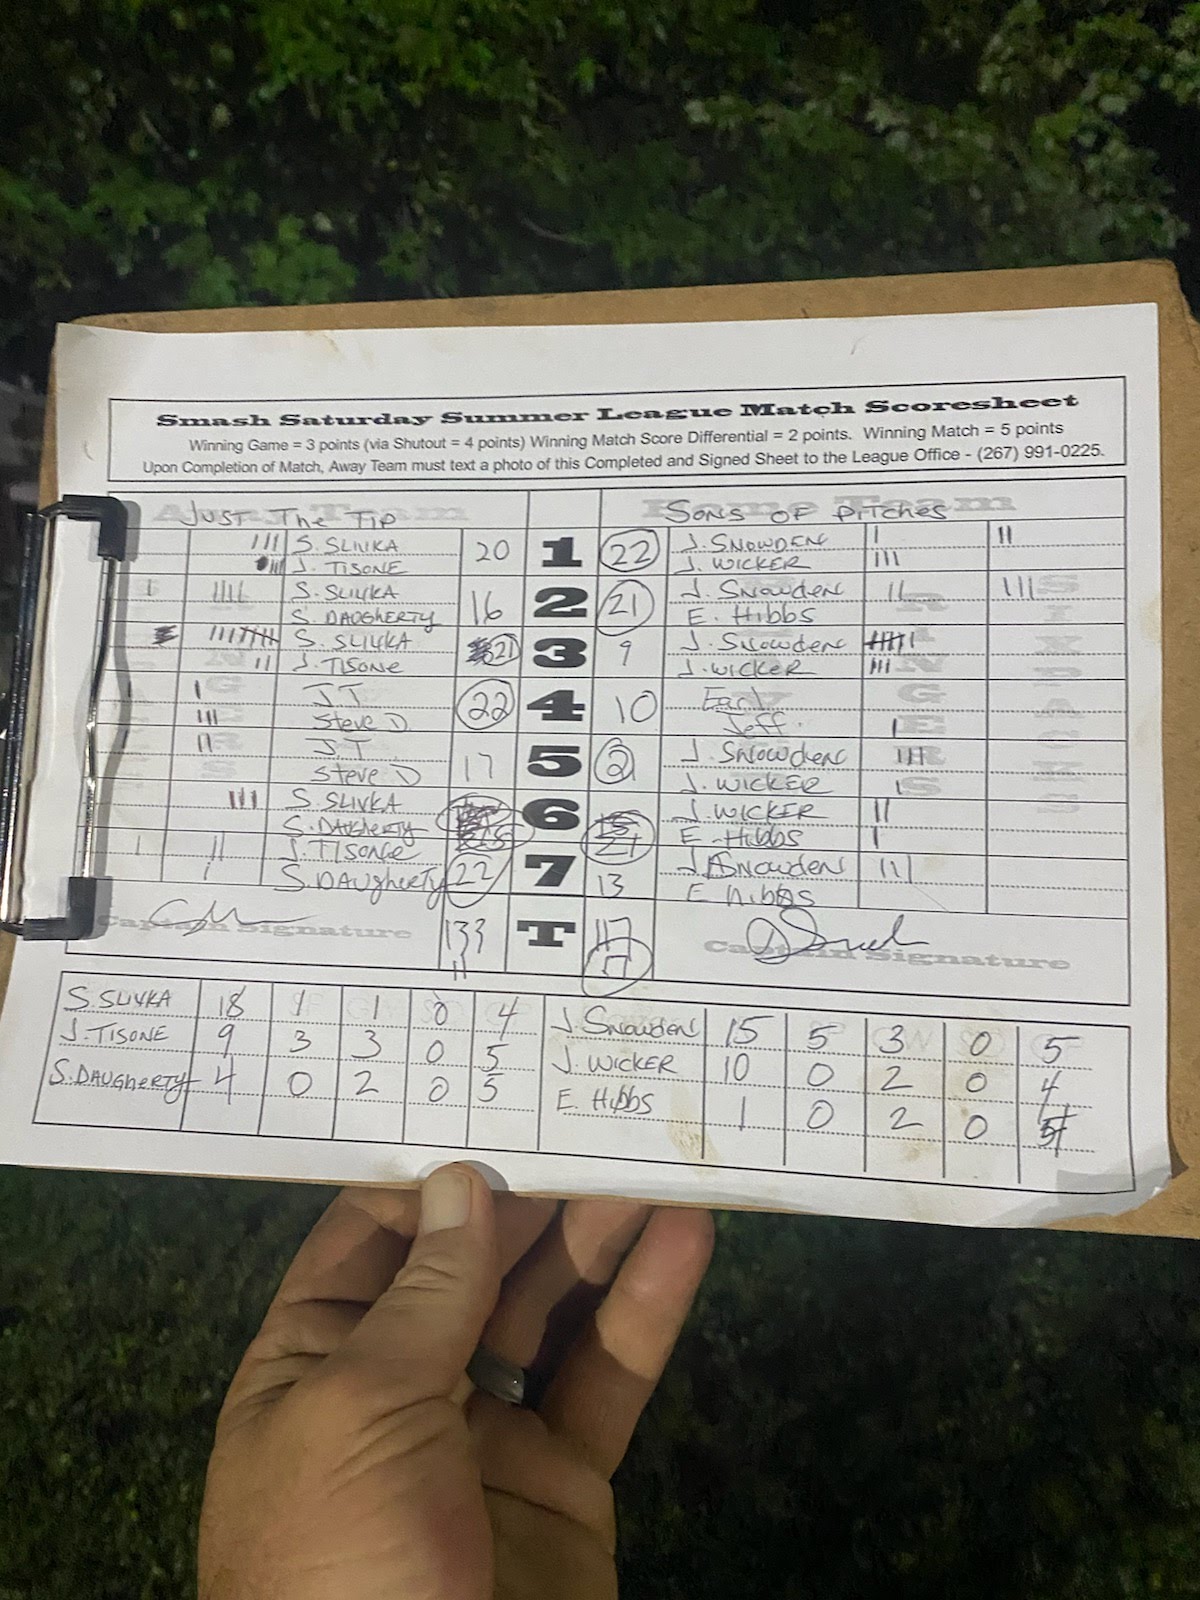 Smash Saturday Summer League Match Scoresheet
Winning Game = 3 points (via Shutout = 4 points) Winning Match Score Differential = 2 points. Winning Match = 5 points
Upon Completion of Match, Away Team must text a photo of this Completed and Signed Sheet to the League Office - (267) 991-0225.
JUST THE TIP SONS OF PITCHES
S. SLIVKA 20 1 22 J. SNOWDEN
J. TISONE J. WICKER
S. SLIVKA 16 2 21 J. Snowden
S. DAUGHERTY E. Hibbs
S. SLIVKA 21 3 9 J. Snowden
J. TISONE J. WICKER
JT 22 4 10 Earl
Steve D Jeff.
JT 17 5 J. Snowden
Steve D J. WICKER
S. SLIVKA 6 J. WICKER
S. DAUGHERTY 21 E. Hibbs
J. TISONE 22 7 13 J. Snowden
S. DAUGHERTY E Hibbs
Captain Signature 133 T 117 Captain Signature
11 17
S. SLIVKA 18 1 1 0 4 J. Snowden 15 5 3 0 5
J. TISONE 9 3 3 0 5 J. WICKER 10 0 2 0 4
S. DAUGHERTY 4 0 2 0 5 E. Hibbs 1 0 2 0